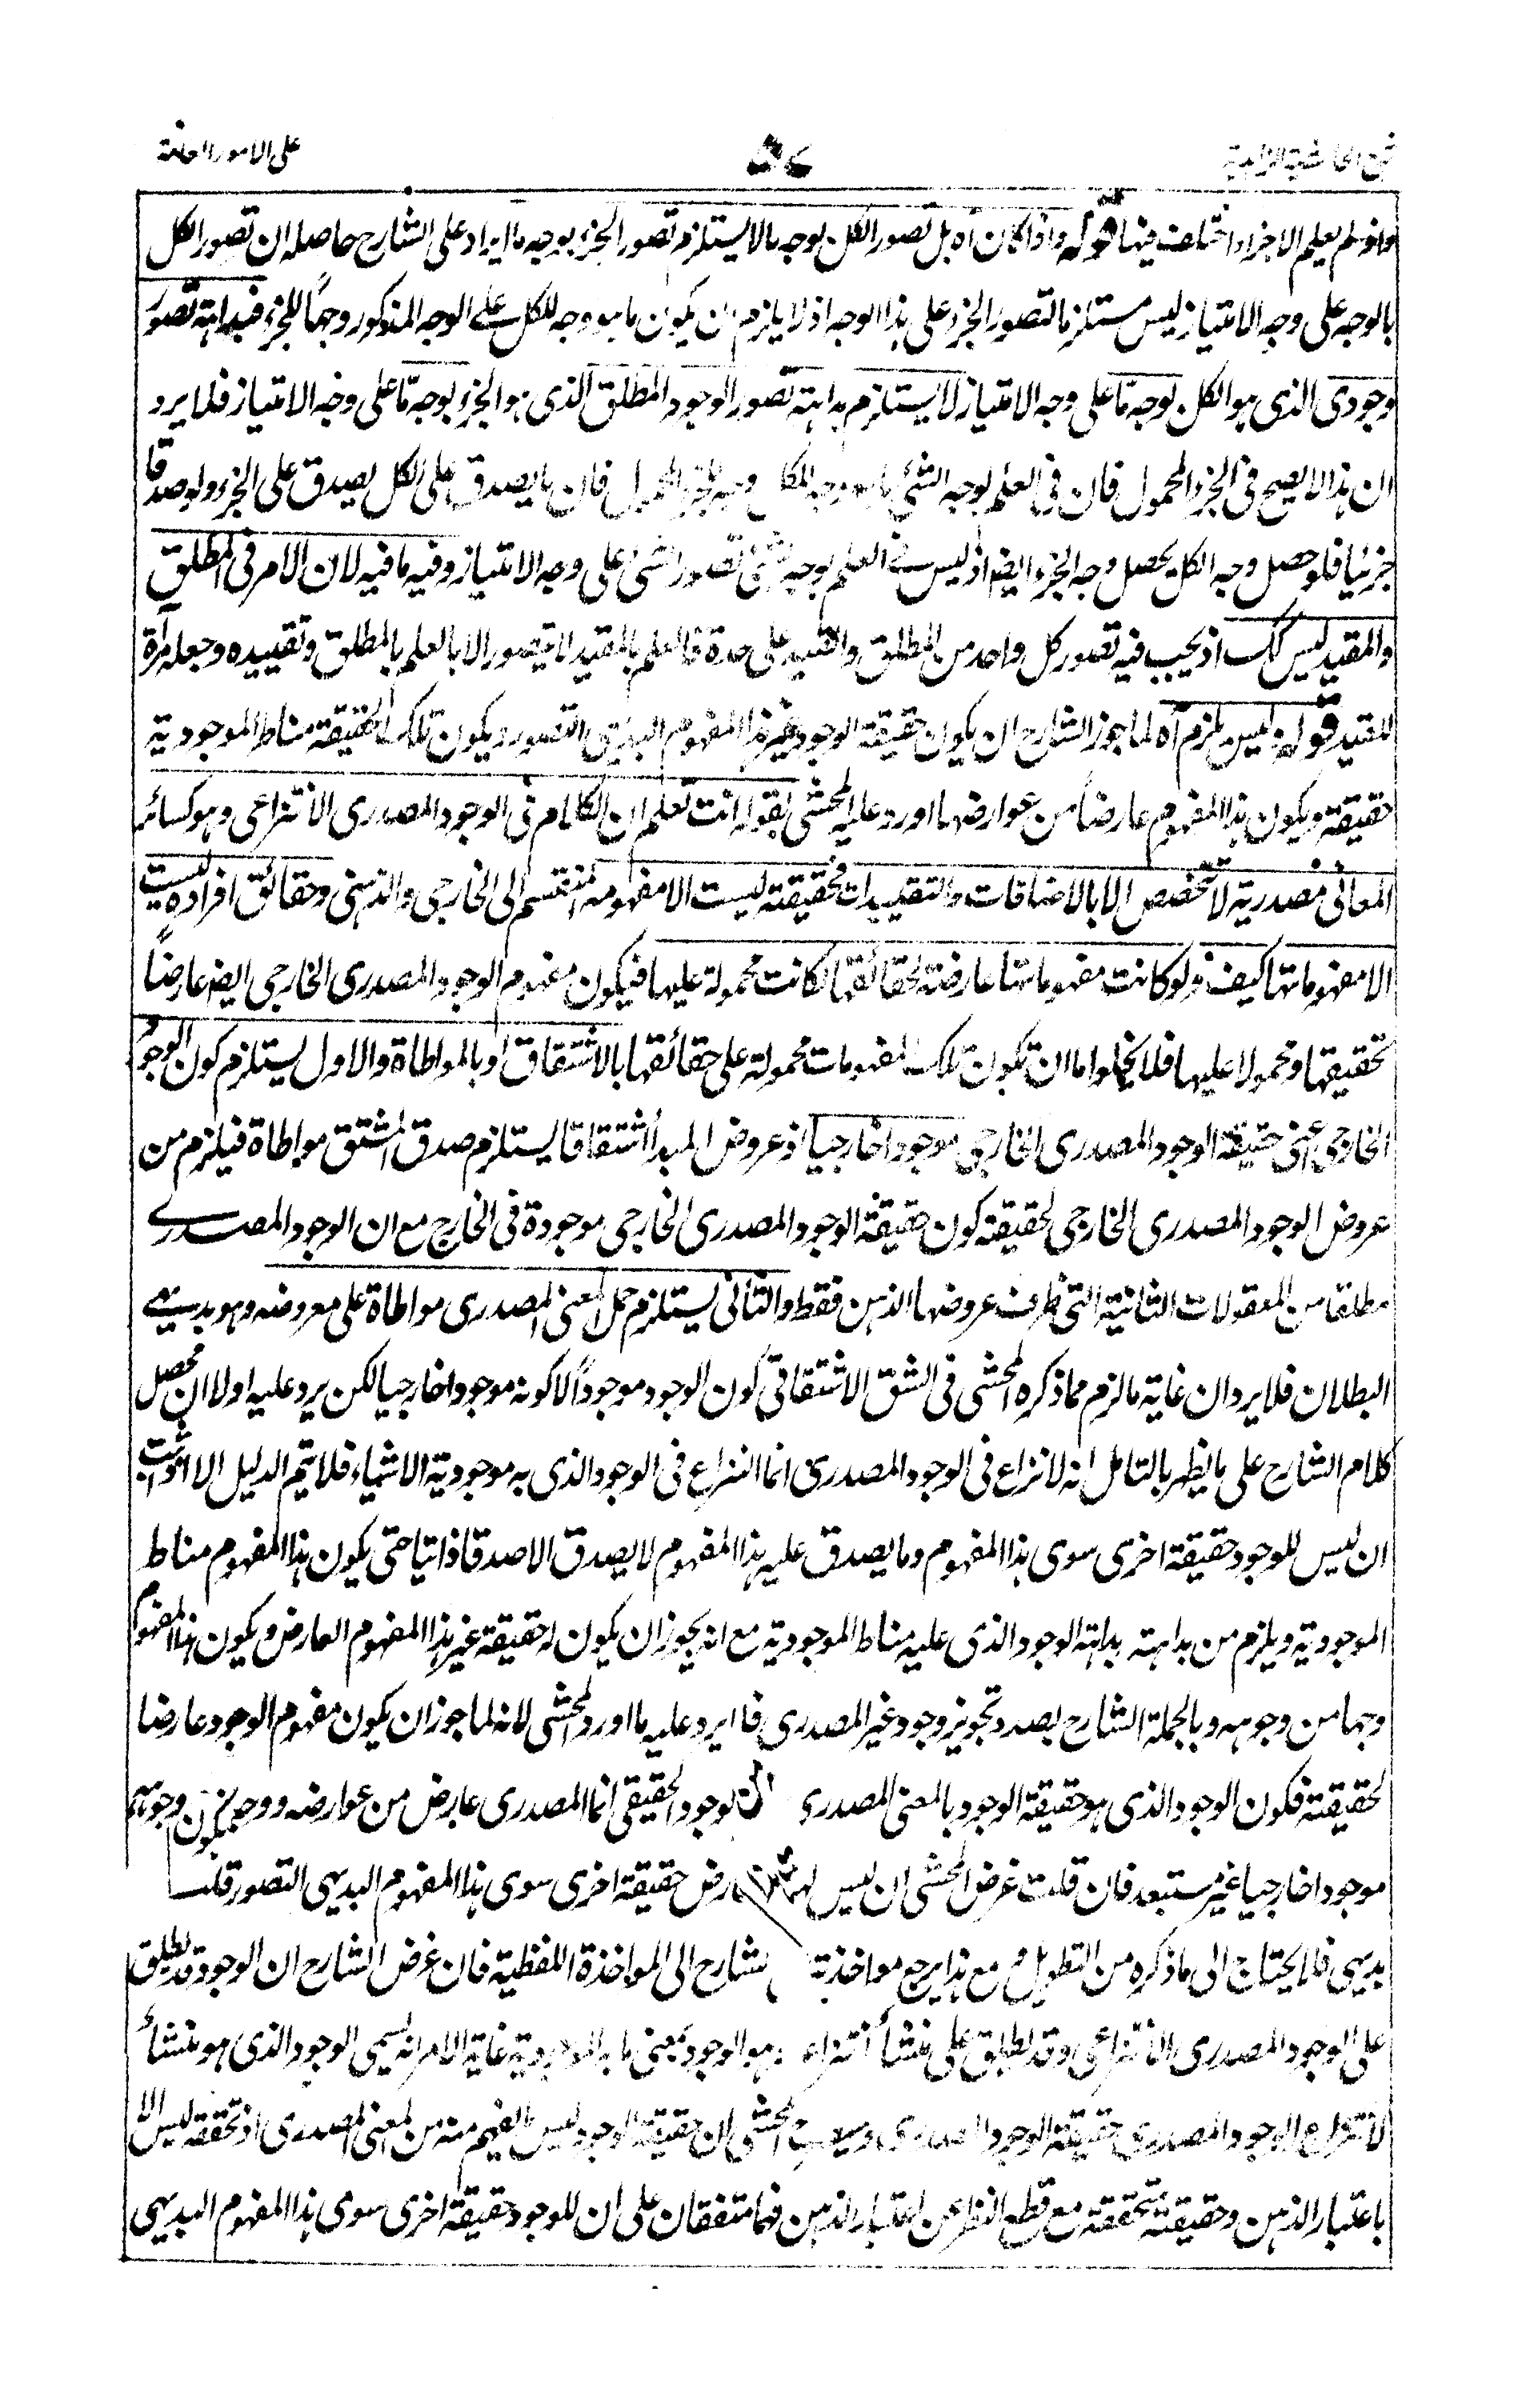 على الامور العامة
واذ لم يعلم الاجزاء اختلفت فيها قوله واذا كان آه بل تصور الكل بوجه ما لا يستلزم تصور الجزء بوجه ما ايراد على الشارح حاصله ان تصور الكل
بالوجه على وجه الامتياز ليس مستلزما لتصور الجزء على هذا الوجه اذ لا يلزم ان يكون ما هو وجه للكل على الوجه المذكور وجهاً للجزء فبداهة تصور
وجودى الذى هو الكل بوجه ما على وجه الامتياز لا يستلزم بداهة تصور الوجود المطلق الذى هو الجزء بوجه ما على وجه الامتياز فلا يرد
ان هذا لا يصح فى الجزء المحمول فان فى العلم بوجه الشئ وجه الكل وجه الجزء المحمول فان ما يصدق على الكل يصدق على الجزء ولو صدقا
جزئيا فلو حصل وجه الكل يحصل وجه الجزء ايضا اذ ليس فى العلم بوجه الشئ تصور الشئ على وجه الامتياز وفيه ما فيه لان الامر فى المطلق
والمقيد ليس كك اذ يجب فيه تصور كل واحد من المطلق والقيد على حدة فالعلم بالمقيد لا يتصور الا بالعلم بالمطلق وتقييده وجعله مرآة
للمقيد قوله وليس يلزم آه لما جوز الشارح ان يكون حقيقة الوجود غير هذا المفهوم البديهى التصور ويكون تلك الحقيقة مناط الموجودية
حقيقة ويكون هذا المفهوم عارضاً من عوارضها اورد عليه المحشى بقوله انت تعلم ان الكلام فى الوجود المصدرى الانتزاعى وهو كسائر
المعانى مصدرية لا تتخصص الا بالاضافات والتقييدات فحقيقته ليست الا مفهومه المنقسم الى الخارجى والذهنى وحقائق افراده ليست
الا مفهوماتها كيف ولو كانت مفهوماتها عارضة لحقائقها لكانت محمولة عليها فيكون مفهوم الوجود المصدرى الخارجى ايضا عارضاً
لحقيقتها ومحمولا عليها فلا يخلوا ما ان تكون تلك المفهومات محمولة على حقائقها بالاشتقاق او بالمواطاة والاول يستلزم كون الوجود
الخارجى اعنى حقيقة الوجود المصدرى الخارجى موجودا خارجيا اذ عروض المبدأ اشتقاقا يستلزم صدق المشتق مواطاة فيلزم من
عروض الوجود المصدرى الخارجى لحقيقة كون حقيقة الوجود المصدرى الخارجى موجودة فى الخارج مع ان الوجود المصدرى
مطلقا من المعقولات الثانية التى ظرف عروضها الذهن فقط والثانى يستلزم حمل المعنى المصدرى مواطاة على معروضه وهو بديهى
البطلان فلا يرد ان غاية ما لزم مما ذكره المحشى فى الشق الاشتقاقى كون الوجود موجوداً لا كونه موجودا خارجيا لكن يرد عليه اولا ان محصل
كلام الشارح على ما يظهر بالتامل انه لا نزاع فى الوجود المصدرى انما النزاع فى الوجود الذى به موجودية الاشياء فلا يتم الدليل الا اذا ثبت
ان ليس للوجود حقيقة اخرى سوى هذا المفهوم وما يصدق عليه هذا المفهوم لا يصدق الا صدقا ذاتيا حتى يكون هذا المفهوم مناط
الموجودية ويلزم من بداهته بداهة الوجود الذى عليه مناط الموجودية مع انه يجوز ان يكون له حقيقة غير هذا المفهوم العارض ويكون هذا المفهوم
وجها من وجوهه وبالجملة الشارح بصدد تجويز وجود غير المصدرى فلا يرد عليه ما اورد المحشى لانه لما جوز ان يكون مفهوم الوجود عارضا
لحقيقته فكون الوجود الذى هو حقيقة الوجود بالمعنى المصدرى الوجود الحقيقى انما المصدرى عارض من عوارضه ووجه من وجوهه فيكون
موجودا خارجيا غير مستبعد فان قلت غرض المحشى ان ليس حقيقة اخرى سوى هذا المفهوم البديهى التصور قلت
بديهى فلا يحتاج الى ما ذكره من التطويل مع هذا يرجع مواخذته الشارح الى المواخذة اللفظية فان غرض الشارح ان الوجود قد يطلق
على الوجود المصدرى الانتزاعى وقد يطلق على منشأ انتزاعه وهو الوجود بمعنى ما به الموجودية غاية الامر انه يسمى الوجود الذى هو منشأ
لانتزاع الوجود المصدرى حقيقة الوجود المصدرى المحشى ان حقيقة الوجود ليس ما يفهم منه من المعنى المصدرى اذ تحققه ليس الا
باعتبار الذهن وحقيقته متحققة مع قطع النظر عن اعتبار الذهن فهما متفقان على ان للوجود حقيقة اخرى سوى هذا المفهوم البديهى